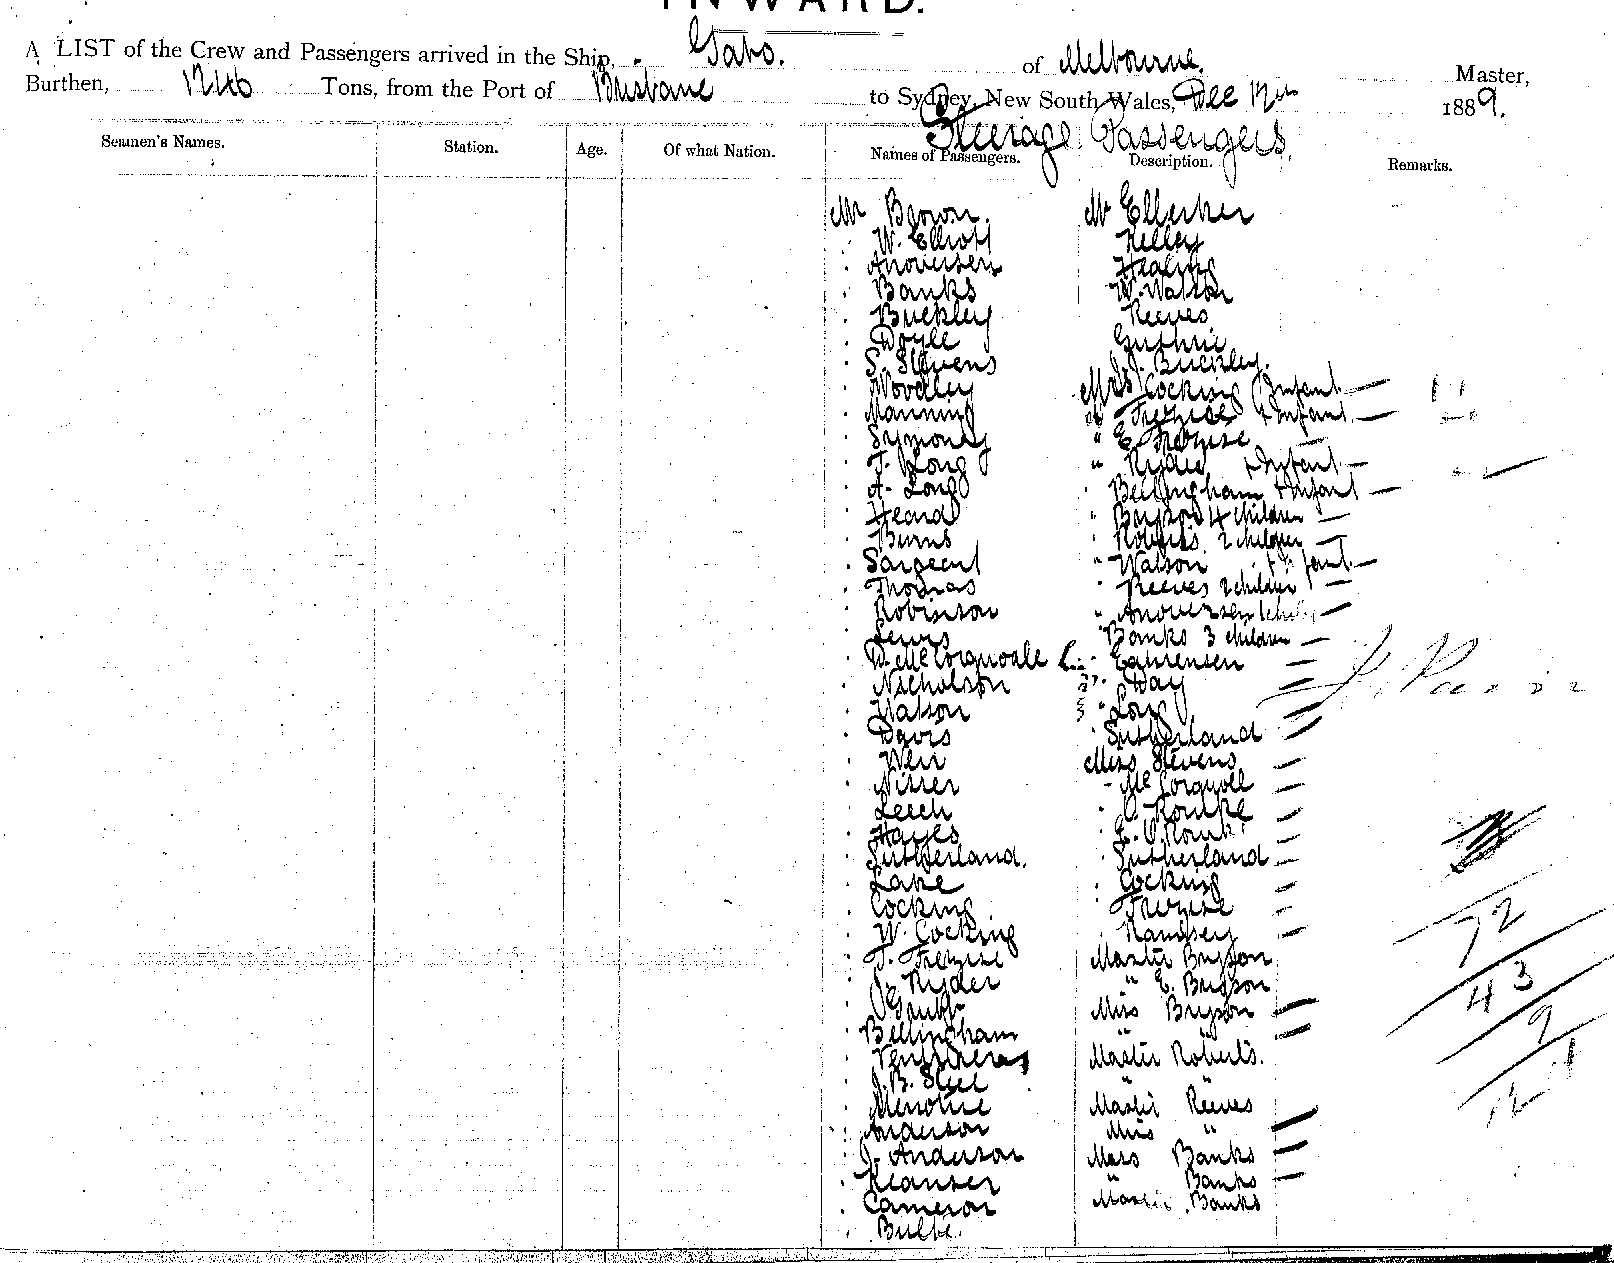 INWARD.
A LIST of the Crew and Passengers arrived in the Ship, Gabo. of Melbourne. Master,
Burthen, 1246 Tons, from the Port of Brisbane to Sydney, New South Wales, Dec 12th 1889.
Steerage Passengers.
Seamen's Names. Station. Age. Of what Nation. Names of Passengers. Description. Remarks.
Mr Brown. Mr Ellerker
" W. Elliott Kelley
" Andersen Healy
" Banks W. Watson
" Buckley Reeves
" Doyle Guthrie
" S. Stevens J. Buckley.
" Woodley Mrs Cocking Infant —
" Manning " Trezise + Infant —
" Symons " E. Trezise —
" J. Long " Ryder + Infant —
" A. Long " Bellingham + Infant —
" Heard " Bryson 4 children —
" Burns " Roberts 2 children —
" Sargeant " Watson + Infant —
" Thomas " Reeves 2 children —
" Robinson " Andersen —
" Lewis " Banks 3 children —
" D. McCorquodale " Laurensen —
" Nicholson " Day —
" Watson " Long —
" Davis " Sutherland —
" Weir Miss Stevens —
" Nisser " McCorquodl —
" Leech " O. Rourke —
" Hayes " E. O. Rourke —
" Sutherland. " Sutherland —
" Lake " Cocking —
" Cocking " Trezise — 72
" W. Cocking " Ramsey —
" J. Trezise Master Bryson
" Ryder " E. Bryson 43
" Miss Bryson —
" Bellingham " " — 9
" Master Roberts.
" J. B. Steel " "
" Master Reeves 121
" Anderson Miss " —
" J. Anderson Miss Banks —
" " Banks —
" Cameron Master Banks
" Bulbe.